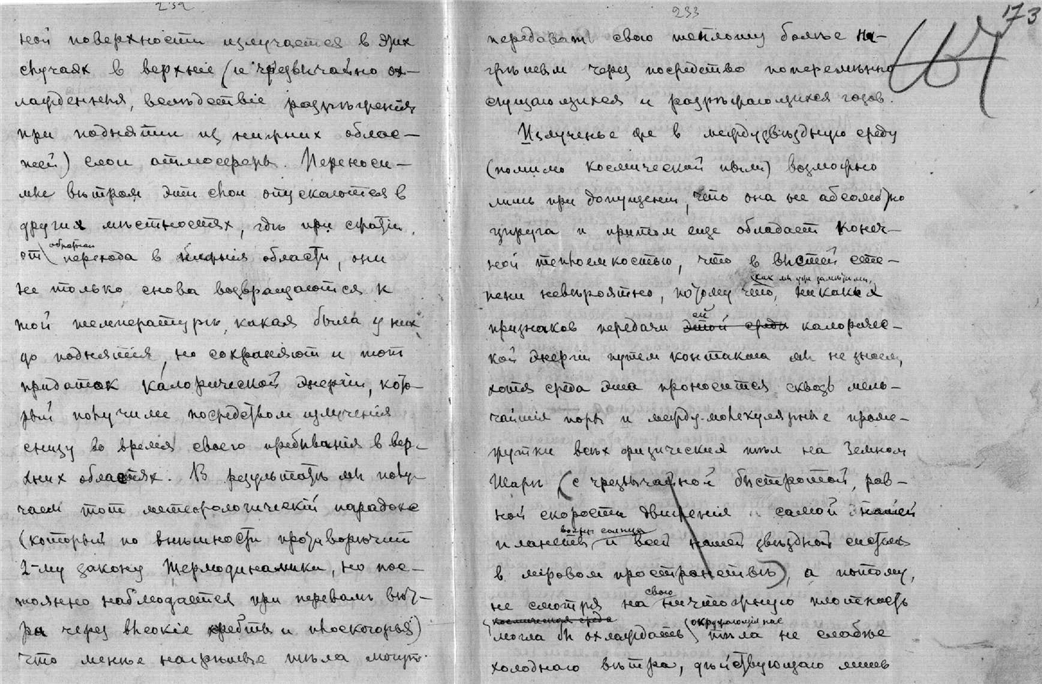 232
ной поверхности излучается в этих
случаях в верхніе (и чрезвычайно ох-
лажденныя, вслѣдствіе разрѣженія
при поднятіи из нижних облас-
тей) слои атмосферы. Переноси-
мые вѣтром эти слои опускаются в
других мѣстностях, гдѣ при сжатіи,
обратнаго
от перехода в нижнія области, они
не только снова возвращаются к
той температурѣ, какая была у них
до поднятія, но сохраняют и тот
придаток калорической энергіи, кото-
рый получили посредством излученія
снизу во время своего пребыванія в вер-
хних областях. В результатѣ мы полу-
чаем тот метеорологическій парадокс
(который по внѣшности противорѣчит
2-му закону термодинамики, но пос-
тоянно наблюдается при перевалѣ вѣт-
ра через высокіе хребты и плоскогорья)
что менѣе нагрѣтые тѣла могут
233
173
передавать свою теплоту болѣе на-
грѣтым через посредство поперемѣнно
сгущающихся и разрѣжающихся газов.
Излученье же в междузвѣздную среду
(помимо космической пыли) возможно
лишь при допущеніи, что она не абсолютно
упруга и притом еще обладает конеч-
ной теплоемкостью, что в высшей сте-
как мы уже замѣтили,
пени невѣроятно, потому что, никаких
ей
признаков передачи этой среде калориче-
ской энергіи путем контакта мы не знаем,
хотя среда эта проносится сквозь мель-
чайшія поры и между-молекулярные проме-
жутки всѣх физических тѣл на Земном
Шарѣ (с чрезвычайной быстротой, рав-
ной скорости движенія и самой нашей
вокруг солнца
планеты и всей нашей звѣздной системы
в міровом пространствѣ), а потому,
свою
не смотря на ничтожную плотность
космическая среда
окружающія нас
могла бы охлаждать тѣла не слабѣе
холоднаго вѣтра, дѣйствующаго лишь